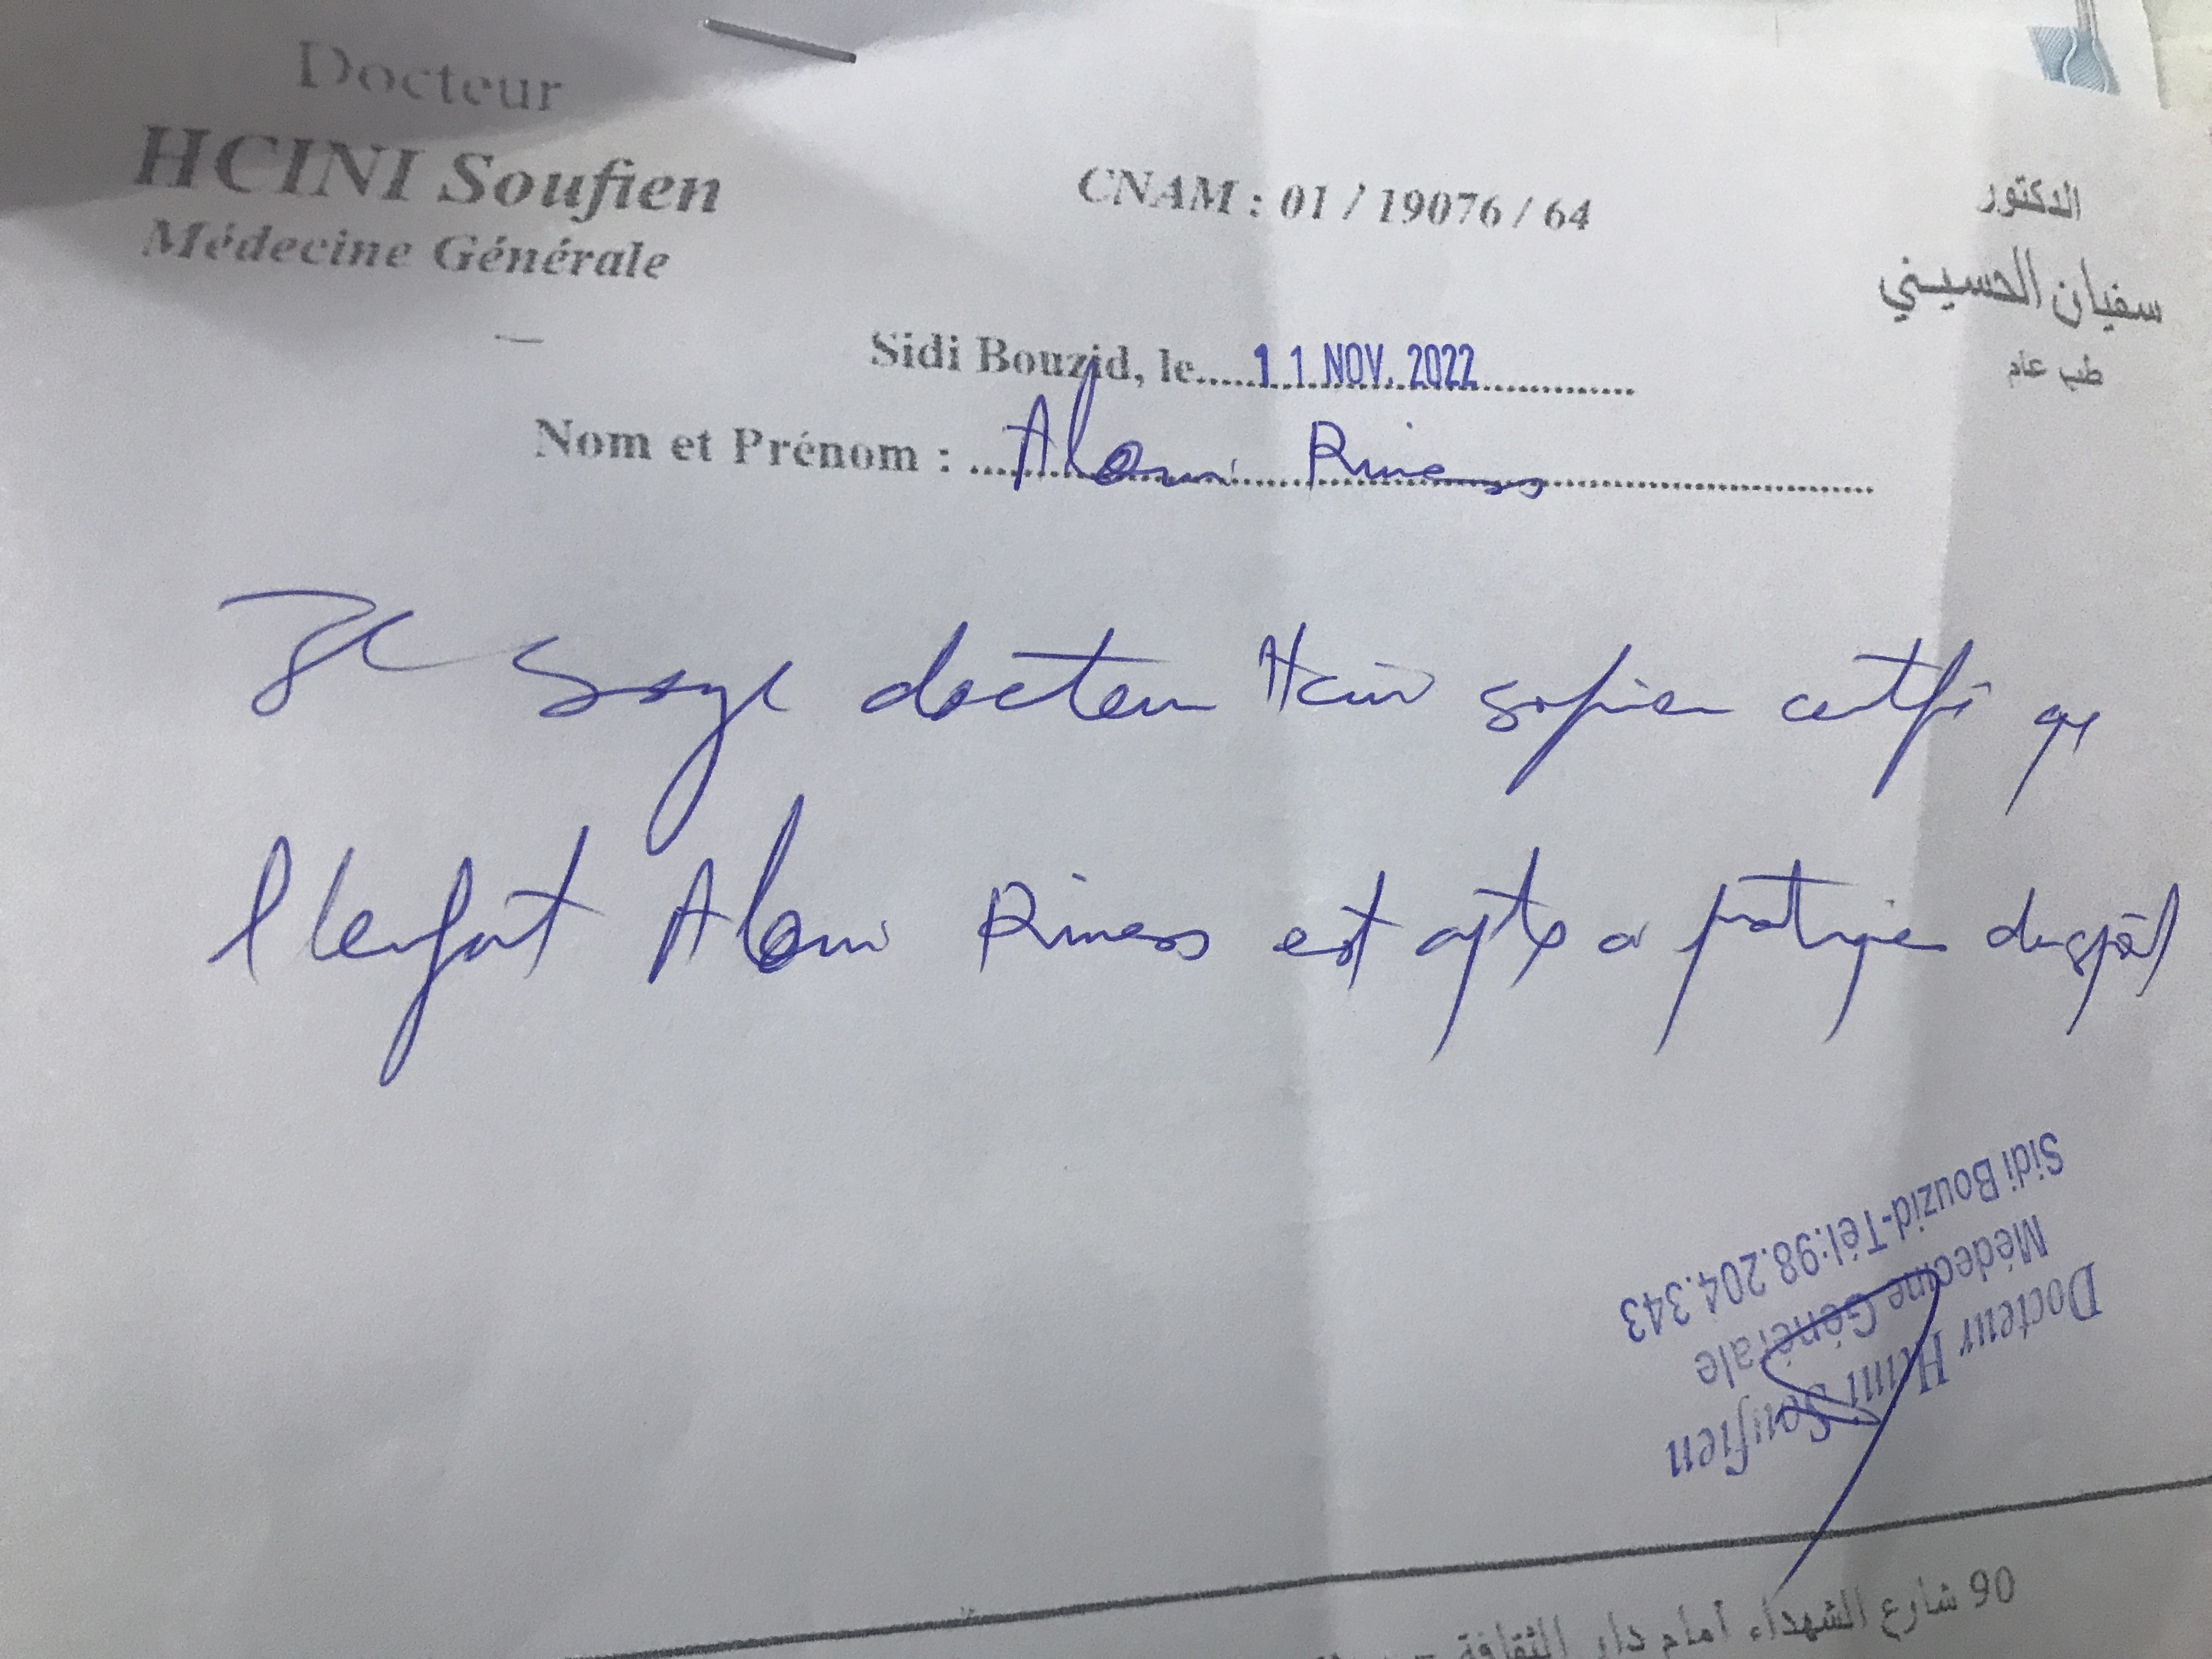 Docteur
HCINI Soufien
Médecine Générale
CNAM : 01 / 19076 / 64
الدكتور
سفيان الحسيني
طب عام
Sidi Bouzid, le..... 11 NOV. 2022
Nom et Prénom : Alaoui
docteur Hcini sofien certifi que
l'enfant est apte a pratiquer du sport
Docteur Hcini Soufien
Médecine Générale
Sidi Bouzid-Tél:98.204.343
90 شارع الشهداء أمام دار الثقافة